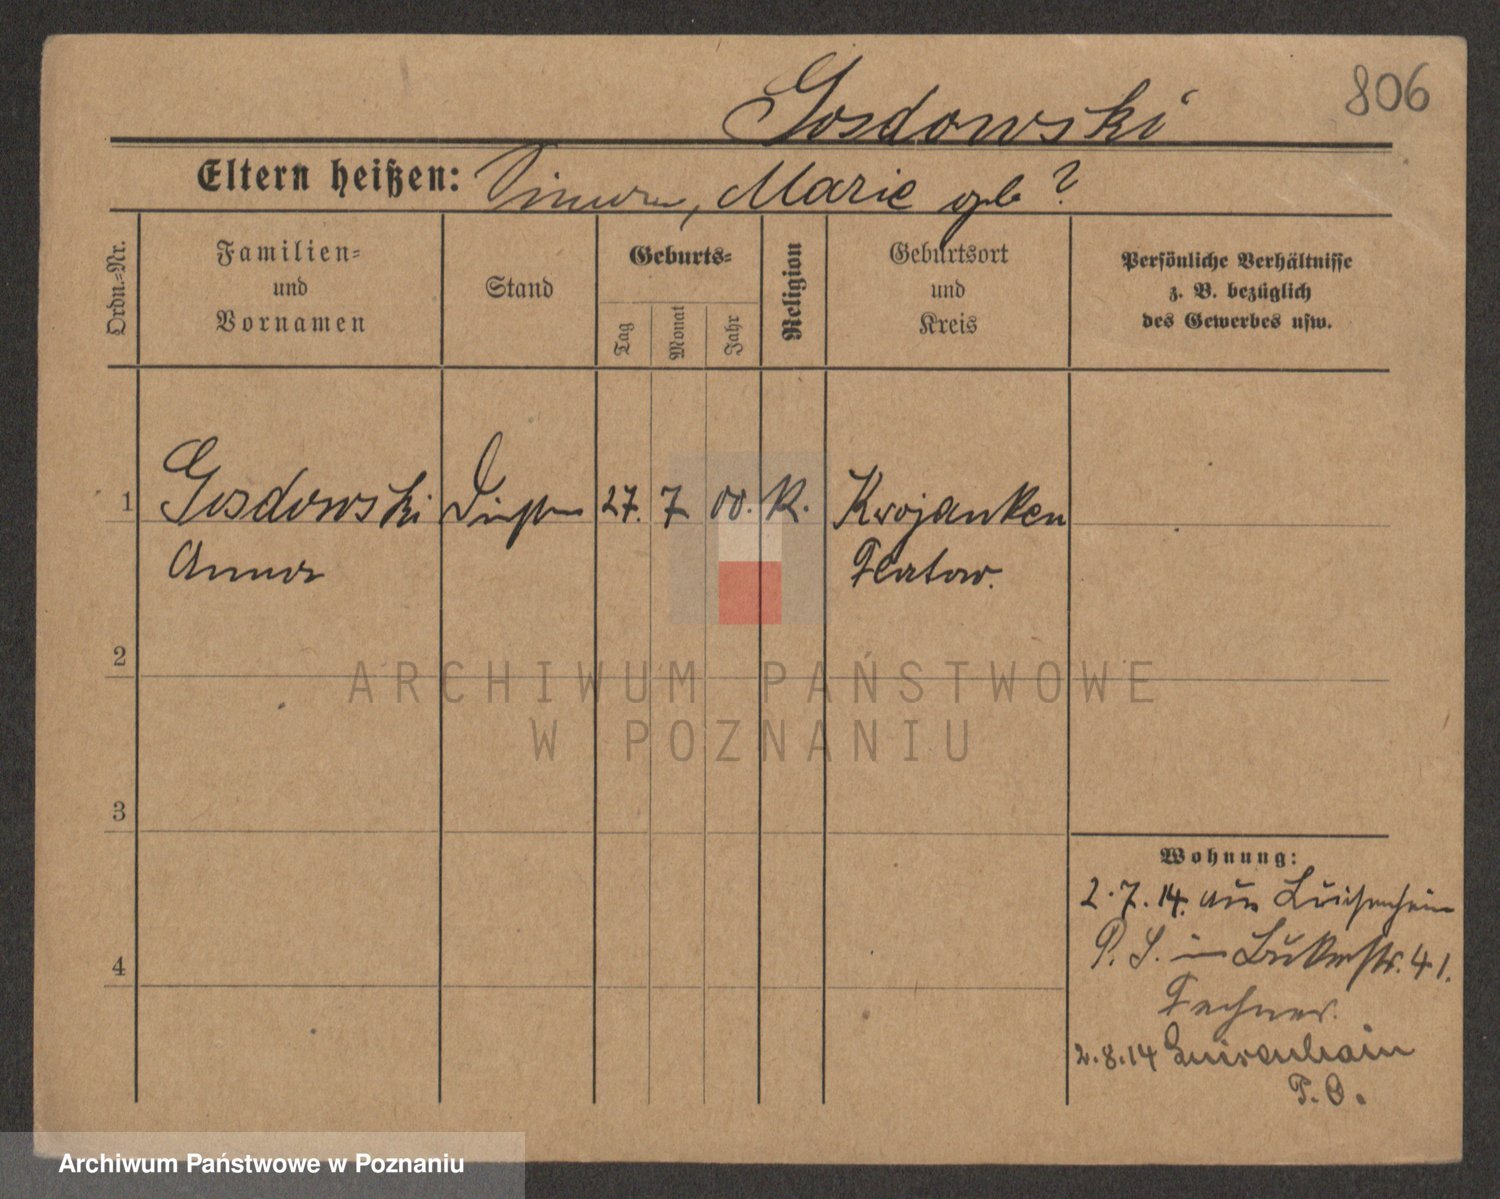 806
Gosdowski
Eltern heißen: Simon, Marie geb ?
Ordn.=Nr.
Familien=
und
Vornamen
Stand
Geburts=
Tag
Monat
Jahr
Religion
Geburtsort
und
Kreis
Persönliche Verhältnisse
z. B. bezüglich
des Gewerbes usw.
1 Gosdowski 27. 7 00. K. Krojanken
Anna Flatow.
2
3
4
Wohnung:
2.7.14. aus Luisenhain
P. O. in 41.
Fechner.
2.8.14 Luisenhain
P. O.
ARCHIWUM PAŃSTWOWE
W POZNANIU
Archiwum Państwowe w Poznaniu